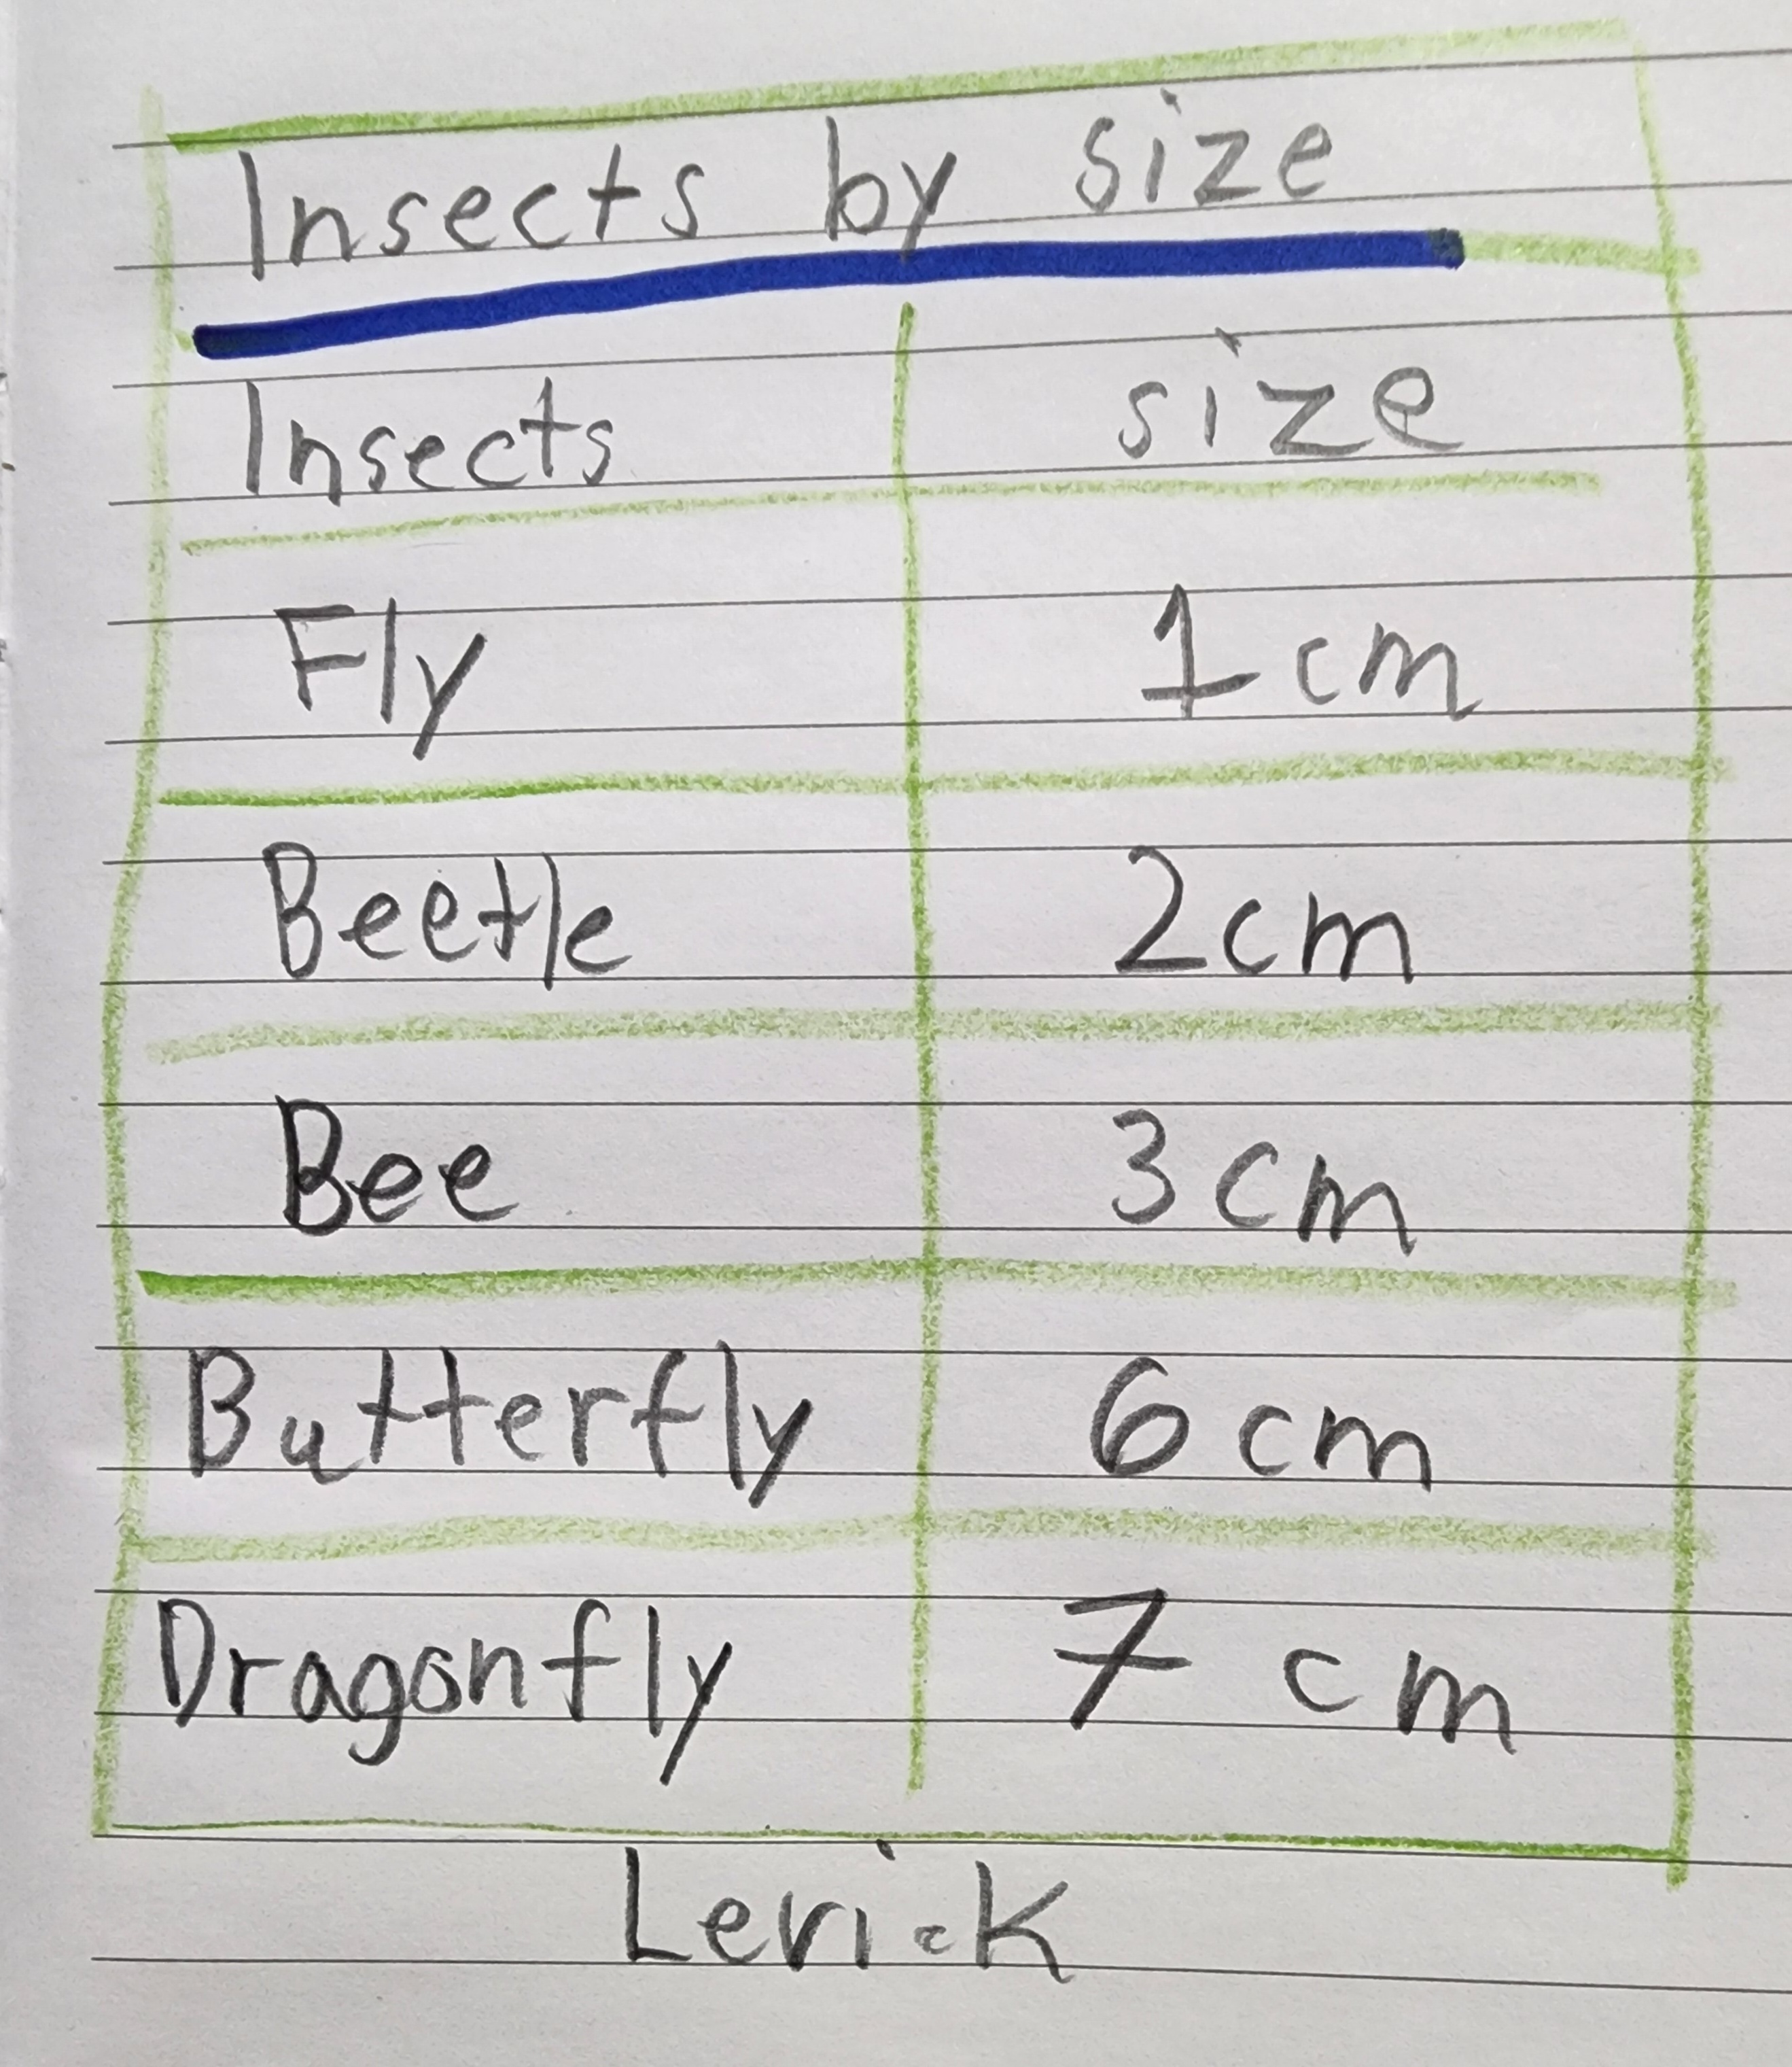 Insects by size
Insects size
Fly 1cm
Beetle 2cm
Bee 3cm
Butterfly 6cm
Dragonfly 7 cm
Lerick